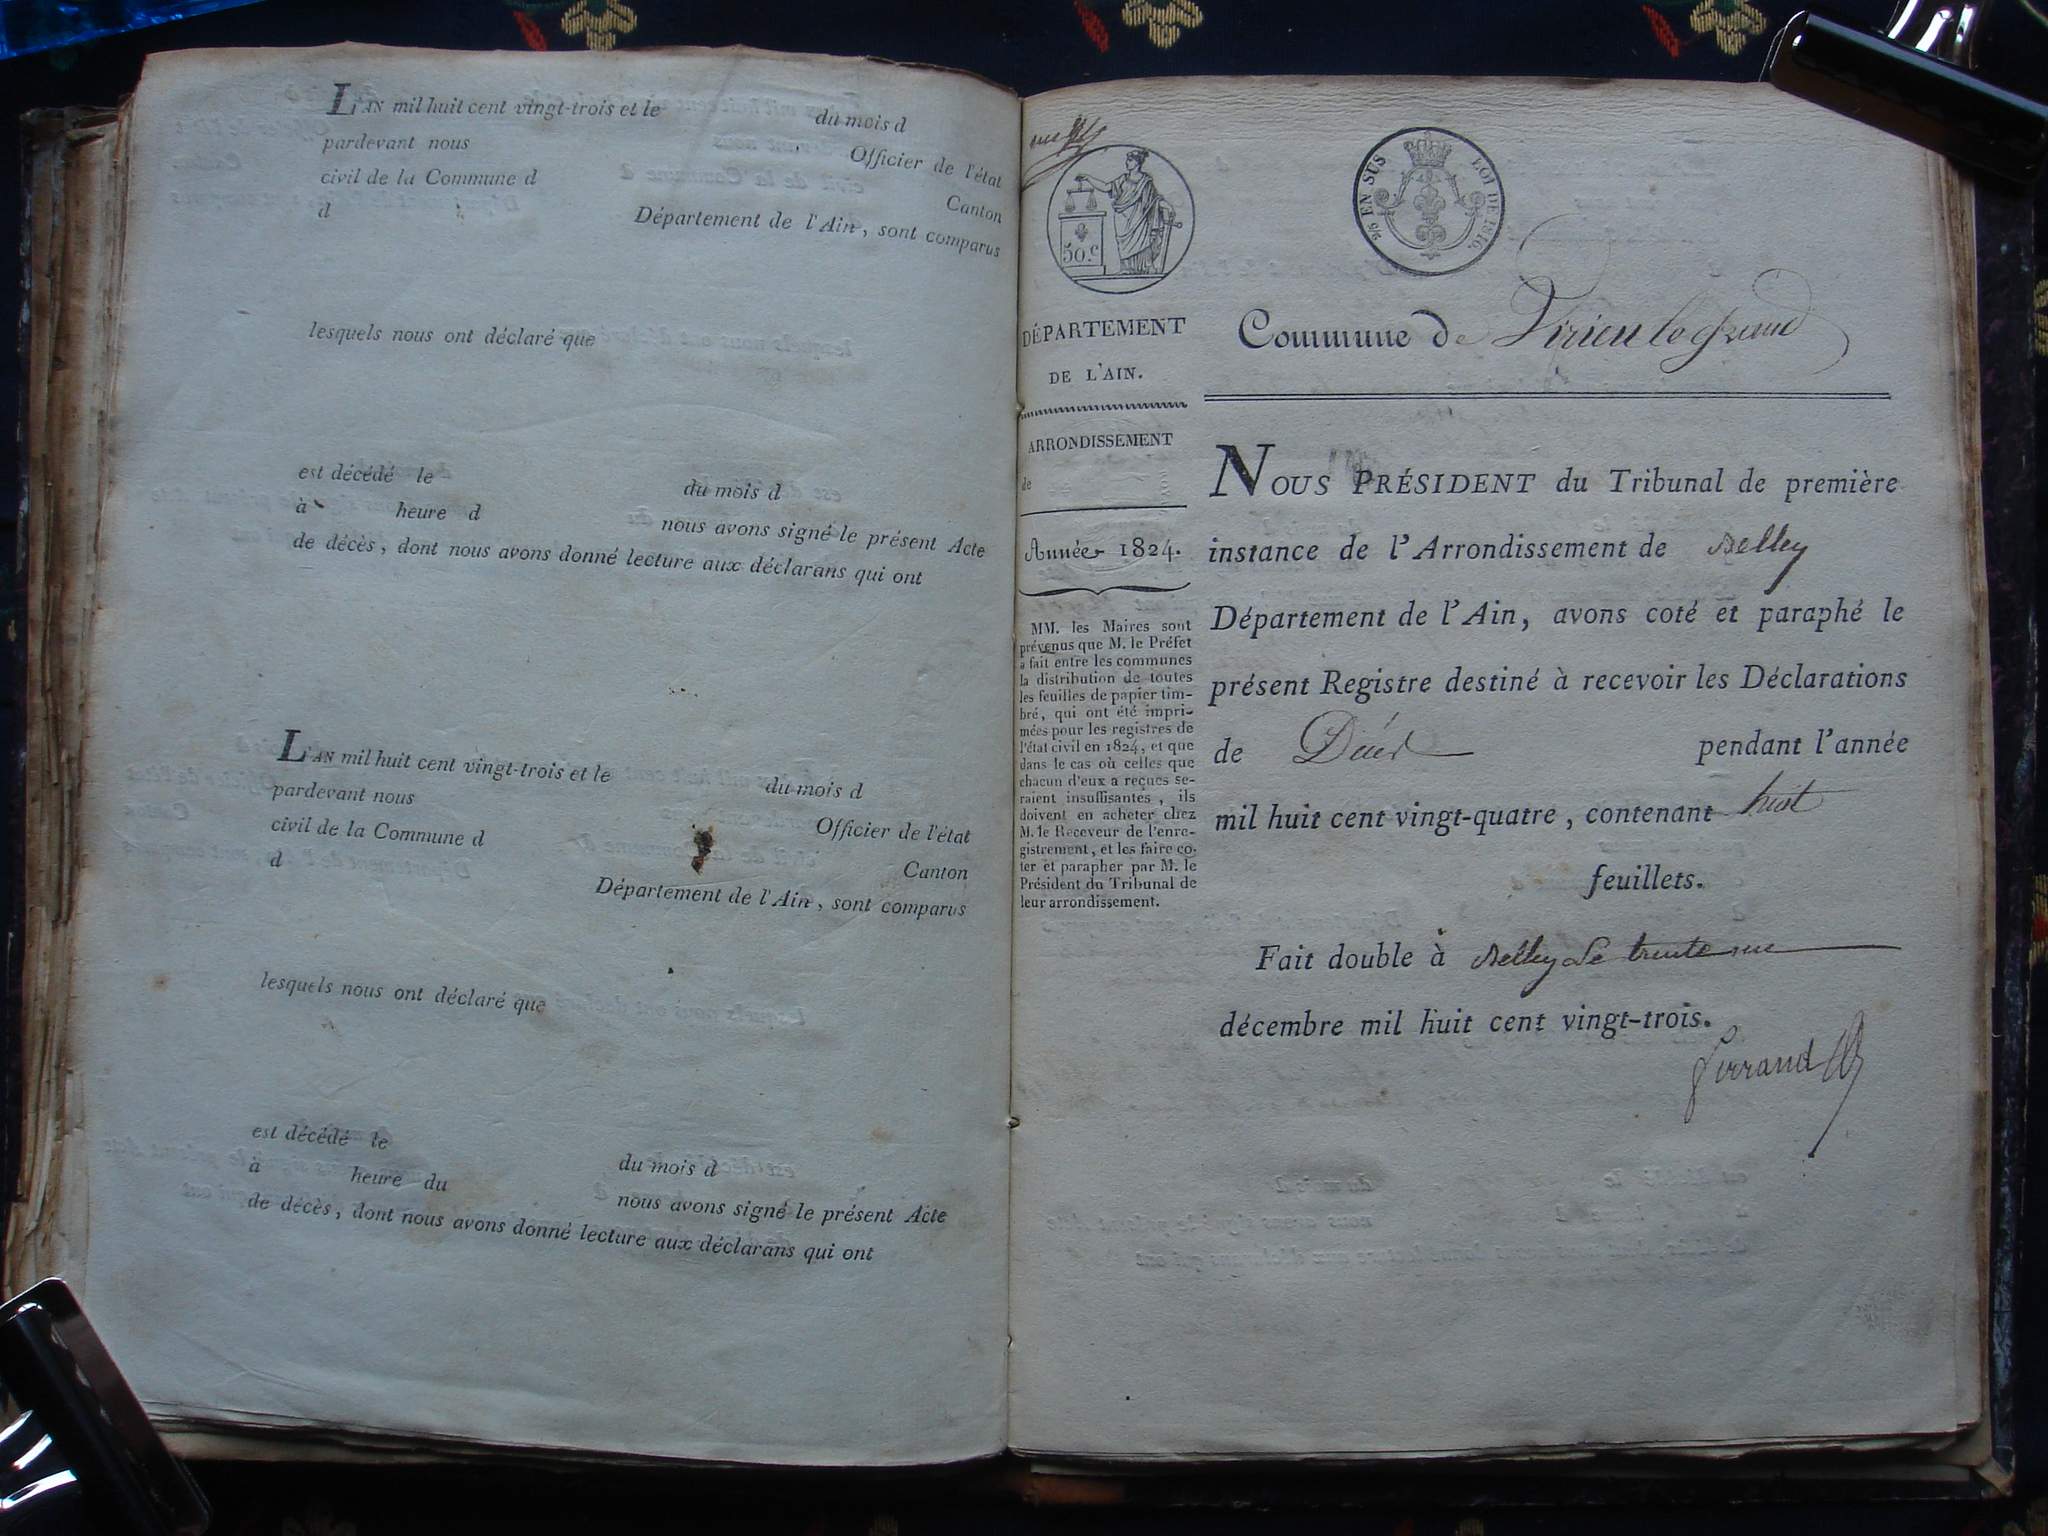 L'AN mil huit cent vingt-trois et le du mois d
pardevant nous Officier de l'état
civil de la Commune d Canton
d Département de l'Ain, sont comparus
lesquels nous ont déclaré que
est décédé le du mois d
à heure d nous avons signé le présent Acte
de décès, dont nous avons donné lecture aux déclarans qui ont
L'AN mil huit cent vingt-trois et le du mois d
pardevant nous Officier de l'état
civil de la Commune d Canton
d Département de l'Ain, sont comparus
lesquels nous ont déclaré que
est décédé le du mois d
à heure du nous avons signé le présent Acte
de décès, dont nous avons donné lecture aux déclarans qui ont
50.c
EN SUS LOI DE 1816.
DÉPARTEMENT
DE L'AIN.
ARRONDISSEMENT
de
Année 1824.
MM. les Maires sont
prévenus que M. le Préfet
a fait entre les communes
la distribution de toutes
les feuilles de papier tim-
bré, qui ont été impri-
mées pour les registres de
l'état civil en 1824, et que
dans le cas où celles que
chacun d'eux a reçues se-
raient insuffisantes, ils
doivent en acheter chez
M. le Receveur de l'enre-
gistrement, et les faire co-
ter et parapher par M. le
Président du Tribunal de
leur arrondissement.
Commune de Virieu le grand
NOUS PRÉSIDENT du Tribunal de première
instance de l'Arrondissement de Belley
Département de l'Ain, avons coté et paraphé le
présent Registre destiné à recevoir les Déclarations
de Décès pendant l'année
mil huit cent vingt-quatre, contenant huit
feuillets.
Fait double à Belley le trente un
décembre mil huit cent vingt-trois.
Ferrand